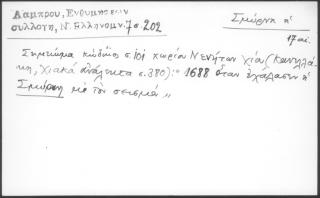 Λαμπρου, Ενθυμησεων
συλλογή, Ν. Ελληνομν. 7 σ. 202
Σμύρνη ἡ
17 αι.
Σημείωμα κώδικος σ. 101 χωρίου Νενήτων Χίου (Κανελλά-
κη, Χιακά ἀνάλεκτα σ. 380): "1688 ὅταν ἐχάλασεν ἡ
Σμύρνη με τὸν σεισμό"